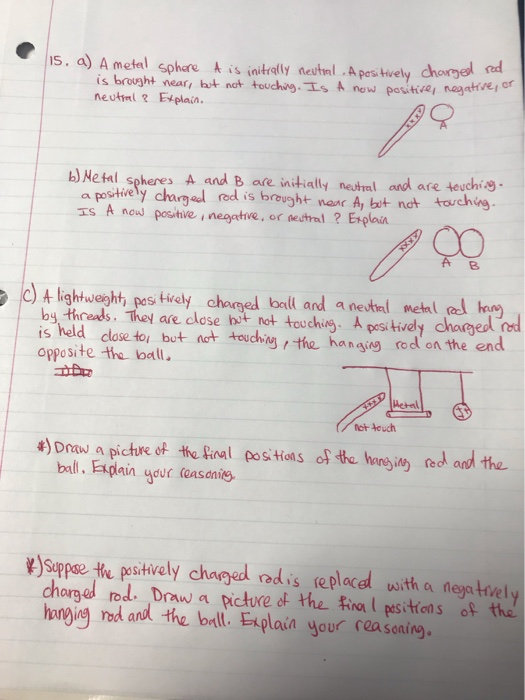 15. a) A metal sphere A is initially neutral. A positively charged rod
is brought near, but not touching. Is A now positive, negative, or
neutral? Explain.
A
b) Metal spheres A and B are initially neutral and are touching.
a positively charged rod is brought near A, but not touching.
Is A now positive, negative, or neutral? Explain
A B
c) A lightweight, positively charged ball and a neutral metal rod hang
by threads. They are close but not touching. A positively charged rod
is held close to, but not touching, the hanging rod on the end
opposite the ball.
Metal
not touch
*) Draw a picture of the final positions of the hanging rod and the
ball. Explain your reasoning
*) Suppose the positively charged rod is replaced with a negatively
charged rod. Draw a picture of the final positions of the
hanging rod and the ball. Explain your reasoning.